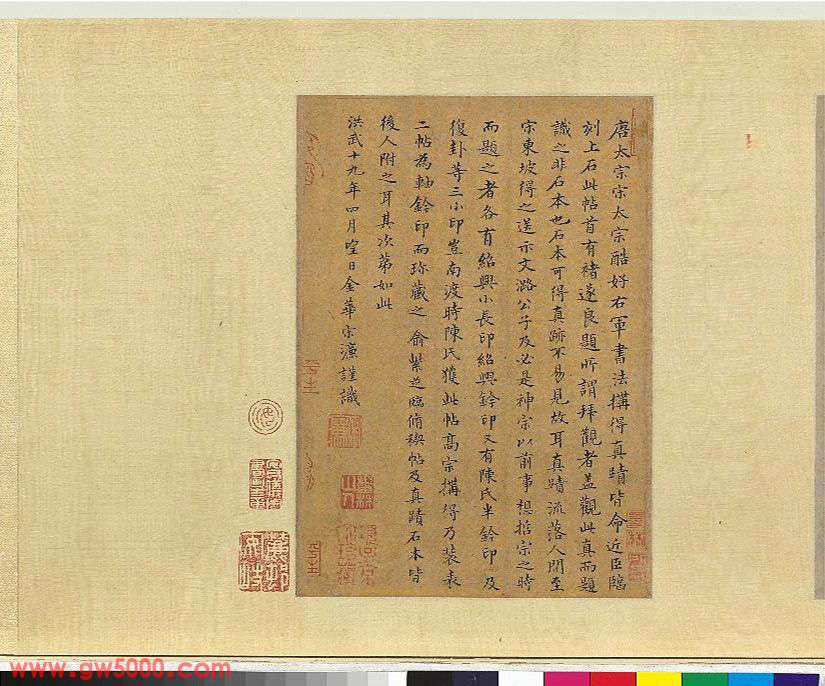 唐太宗宋太宗酷好右軍書法搆得真蹟皆命近臣臨
刻上石此帖首有褚遂良題所謂拜觀者盖觀此真而題
識之非石本也石本可得真跡不易見故耳真蹟流落人間至
宗東坡得之送示文潞公子及必是神宗以前事想哲宗之時
而題之者各有紹興小長印紹興鈐印又有陳氏半鈐印及
復卦等三小印豈南渡時陳氏獲此帖高宗搆得乃裝表
二帖為軸鈐印而珍藏之俞紫芝臨脩禊帖及真蹟石本皆
後人附之耳其次第如此
洪武十九年四月望日金華宋濂謹識
www.gw5000.com